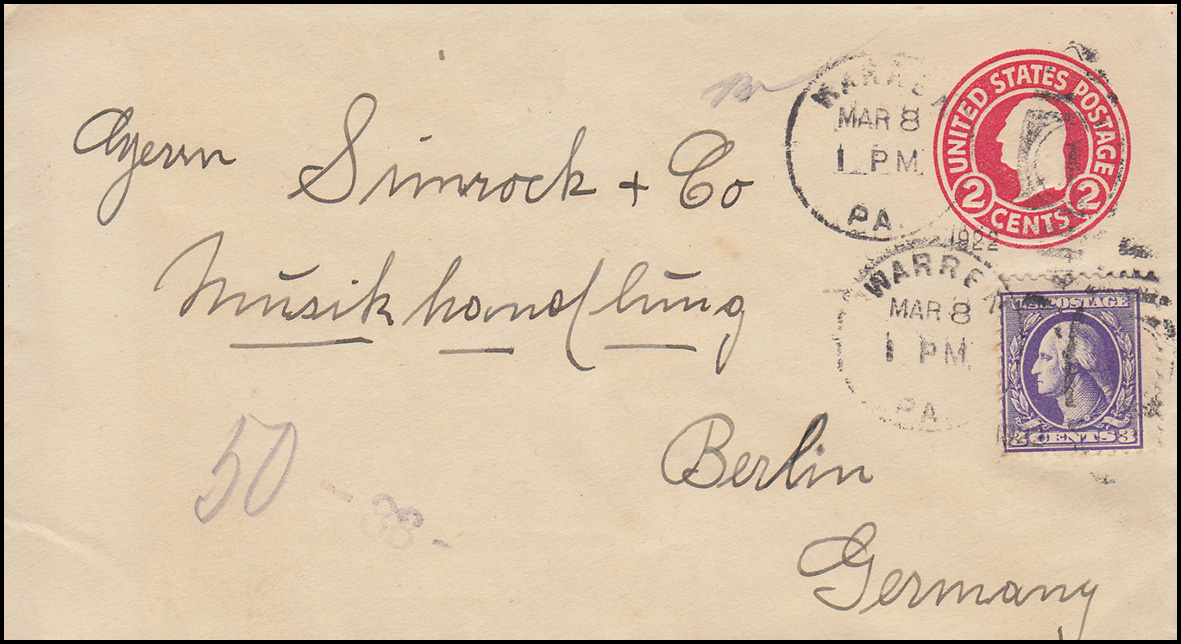 Herrn Simrock + Co
Musikhandlung
Berlin
Germany
50
- 38 -
WARREN
MAR 8
1 PM
PA.
1922
UNITED STATES POSTAGE
2 CENTS 2
WARREN
MAR 8
1 PM
PA.
U.S. POSTAGE
CENTS 3